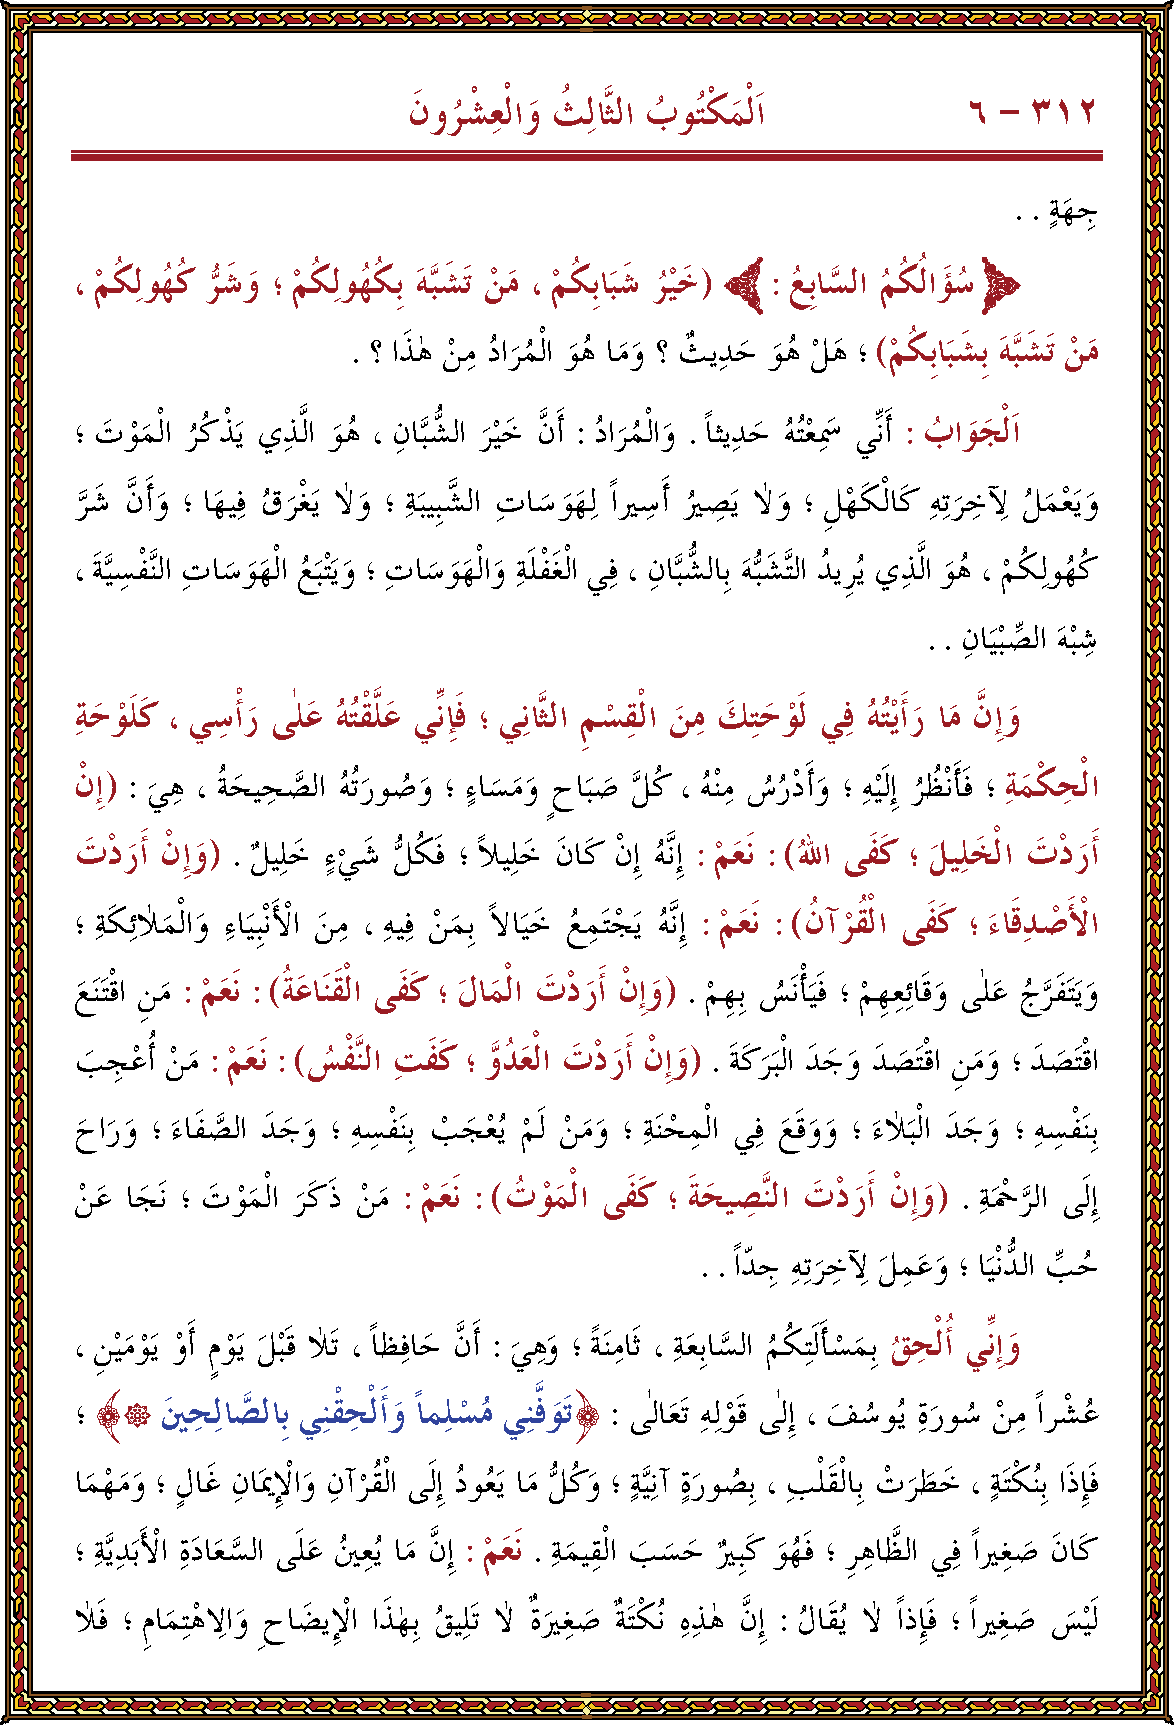 ٣١٢ - ٦ اَلْمَكْتُوبُ الثَّالِثُ وَالْعِشْرُونَ
جِهَةٍ . .
سُؤَالُكُمُ السَّابِعُ : (خَيْرُ شَبَابِكُمْ ، مَنْ تَشَبَّهَ بِكُهُولِكُمْ ؛ وَشَرُّ كُهُولِكُمْ ،
مَنْ تَشَبَّهَ بِشَبَابِكُمْ) ؛ هَلْ هُوَ حَدِيثٌ ؟ وَمَا هُوَ الْمُرَادُ مِنْ هٰذَا ؟ .
اَلْجَوَابُ : أَنِّي سَمِعْتُهُ حَدِيثاً . وَالْمُرَادُ : أَنَّ خَيْرَ الشُّبَّانِ ، هُوَ الَّذِي يَذْكُرُ الْمَوْتَ ؛
وَيَعْمَلُ لِآخِرَتِهِ كَالْكَهْلِ ؛ وَلَا يَصِيرُ أَسِيراً لِهَوَسَاتِ الشَّبِيبَةِ ؛ وَلَا يَغْرَقُ فِيهَا ؛ وَأَنَّ شَرَّ
كُهُولِكُمْ ، هُوَ الَّذِي يُرِيدُ التَّشَبُّهَ بِالشُّبَّانِ ، فِي الْغَفْلَةِ وَالْهَوَسَاتِ ؛ وَيَتْبَعُ الْهَوَسَاتِ النَّفْسِيَّةَ ،
شِبْهَ الصِّبْيَانِ . .
وَإِنَّ مَا رَأَيْتُهُ فِي لَوْحَتِكَ مِنَ الْقِسْمِ الثَّانِي ؛ فَإِنِّي عَلَّقْتُهُ عَلٰى رَأْسِي ، كَلَوْحَةِ
الْحِكْمَةِ ؛ فَأَنْظُرُ إِلَيْهِ ؛ وَأَدْرُسُ مِنْهُ ، كُلَّ صَبَاحٍ وَمَسَاءٍ ؛ وَصُورَتُهُ الصَّحِيحَةُ ، هِيَ : (إِنْ
أَرَدْتَ الْخَلِيلَ ؛ كَفَى اللهُ) : نَعَمْ : إِنَّهُ إِنْ كَانَ خَلِيلاً ؛ فَكُلُّ شَيْءٍ خَلِيلٌ . (وَإِنْ أَرَدْتَ
الْأَصْدِقَاءَ ؛ كَفَى الْقُرْآنُ) : نَعَمْ : إِنَّهُ يَجْتَمِعُ خَيَالاً بِمَنْ فِيهِ ، مِنَ الْأَنْبِيَاءِ وَالْمَلَائِكَةِ ؛
وَيَتَفَرَّجُ عَلٰى وَقَائِعِهِمْ ؛ فَيَأْنَسُ بِهِمْ . (وَإِنْ أَرَدْتَ الْمَالَ ؛ كَفَى الْقَنَاعَةُ) : نَعَمْ : مَنِ اقْتَنَعَ
اقْتَصَدَ ؛ وَمَنِ اقْتَصَدَ وَجَدَ الْبَرَكَةَ . (وَإِنْ أَرَدْتَ الْعَدُوَّ ؛ كَفَتِ النَّفْسُ) : نَعَمْ : مَنْ أُعْجِبَ
بِنَفْسِهِ ؛ وَجَدَ الْبَلَاءَ ؛ وَوَقَعَ فِي الْمِحْنَةِ ؛ وَمَنْ لَمْ يُعْجَبْ بِنَفْسِهِ ؛ وَجَدَ الصَّفَاءَ ؛ وَرَاحَ
إِلَى الرَّحْمَةِ . (وَإِنْ أَرَدْتَ النَّصِيحَةَ ؛ كَفَى الْمَوْتُ) : نَعَمْ : مَنْ ذَكَرَ الْمَوْتَ ؛ نَجَا عَنْ
حُبِّ الدُّنْيَا ؛ وَعَمِلَ لِآخِرَتِهِ جِدّاً . .
وَإِنِّي أُلْحِقُ بِمَسْأَلَتِكُمُ السَّابِعَةِ ، ثَامِنَةً ؛ وَهِيَ : أَنَّ حَافِظاً ، تَلَا قَبْلَ يَوْمٍ أَوْ يَوْمَيْنِ ،
عُشْراً مِنْ سُورَةِ يُوسُفَ ، إِلٰى قَوْلِهِ تَعَالٰى : ﴿تَوَفَّنِي مُسْلِماً وَأَلْحِقْنِي بِالصَّالِحِينَ﴾ ؛
فَإِذَا بِنُكْتَةٍ ، خَطَرَتْ بِالْقَلْبِ ، بِصُورَةٍ آنِيَّةٍ ؛ وَكُلُّ مَا يَعُودُ إِلَى الْقُرْآنِ وَالْإِيمَانِ غَالٍ ؛ وَمَهْمَا
كَانَ صَغِيراً فِي الظَّاهِرِ ؛ فَهُوَ كَبِيرٌ حَسَبَ الْقِيمَةِ . نَعَمْ : إِنَّ مَا يُعِينُ عَلَى السَّعَادَةِ الْأَبَدِيَّةِ ؛
لَيْسَ صَغِيراً ؛ فَإِذاً لَا يُقَالُ : إِنَّ هٰذِهِ نُكْتَةٌ صَغِيرَةٌ لَا تَلِيقُ بِهٰذَا الْإِيضَاحِ وَالِاهْتِمَامِ ؛ فَلَا